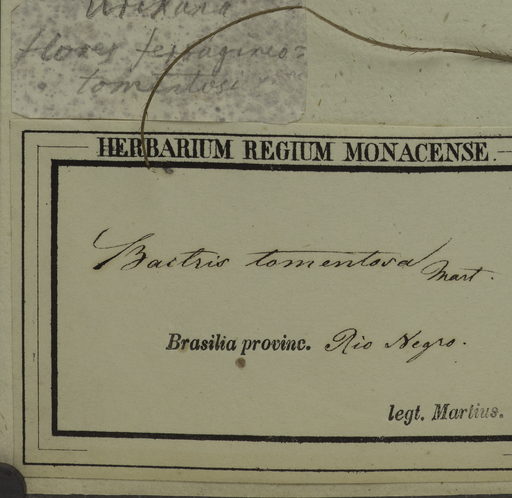 Uricana
flores ferrugineo-
tomentosi
HERBARIUM REGIUM MONACENSE.
Bactris tomentosa Mart.
Brasilia provinc. Rio Negro.
legt. Martius.